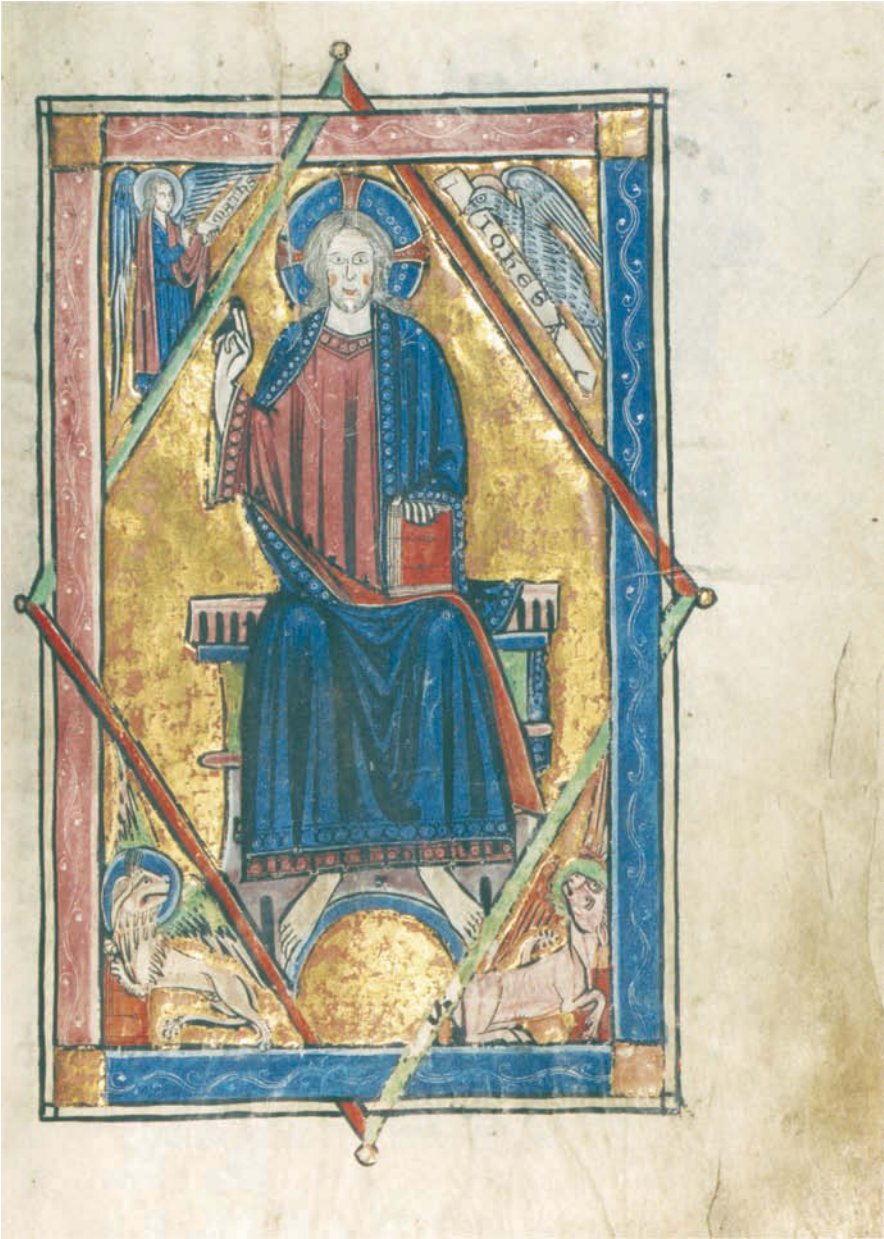 Math
IOHES